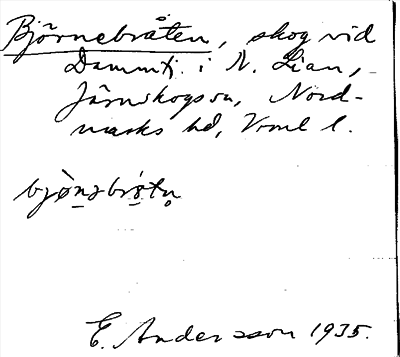 Björnebråten, skog vid
Dammtj. i N. Lian,
Järnskogs sn, Nord-
marks hd, Vrml l.
E. Andersson 1935.